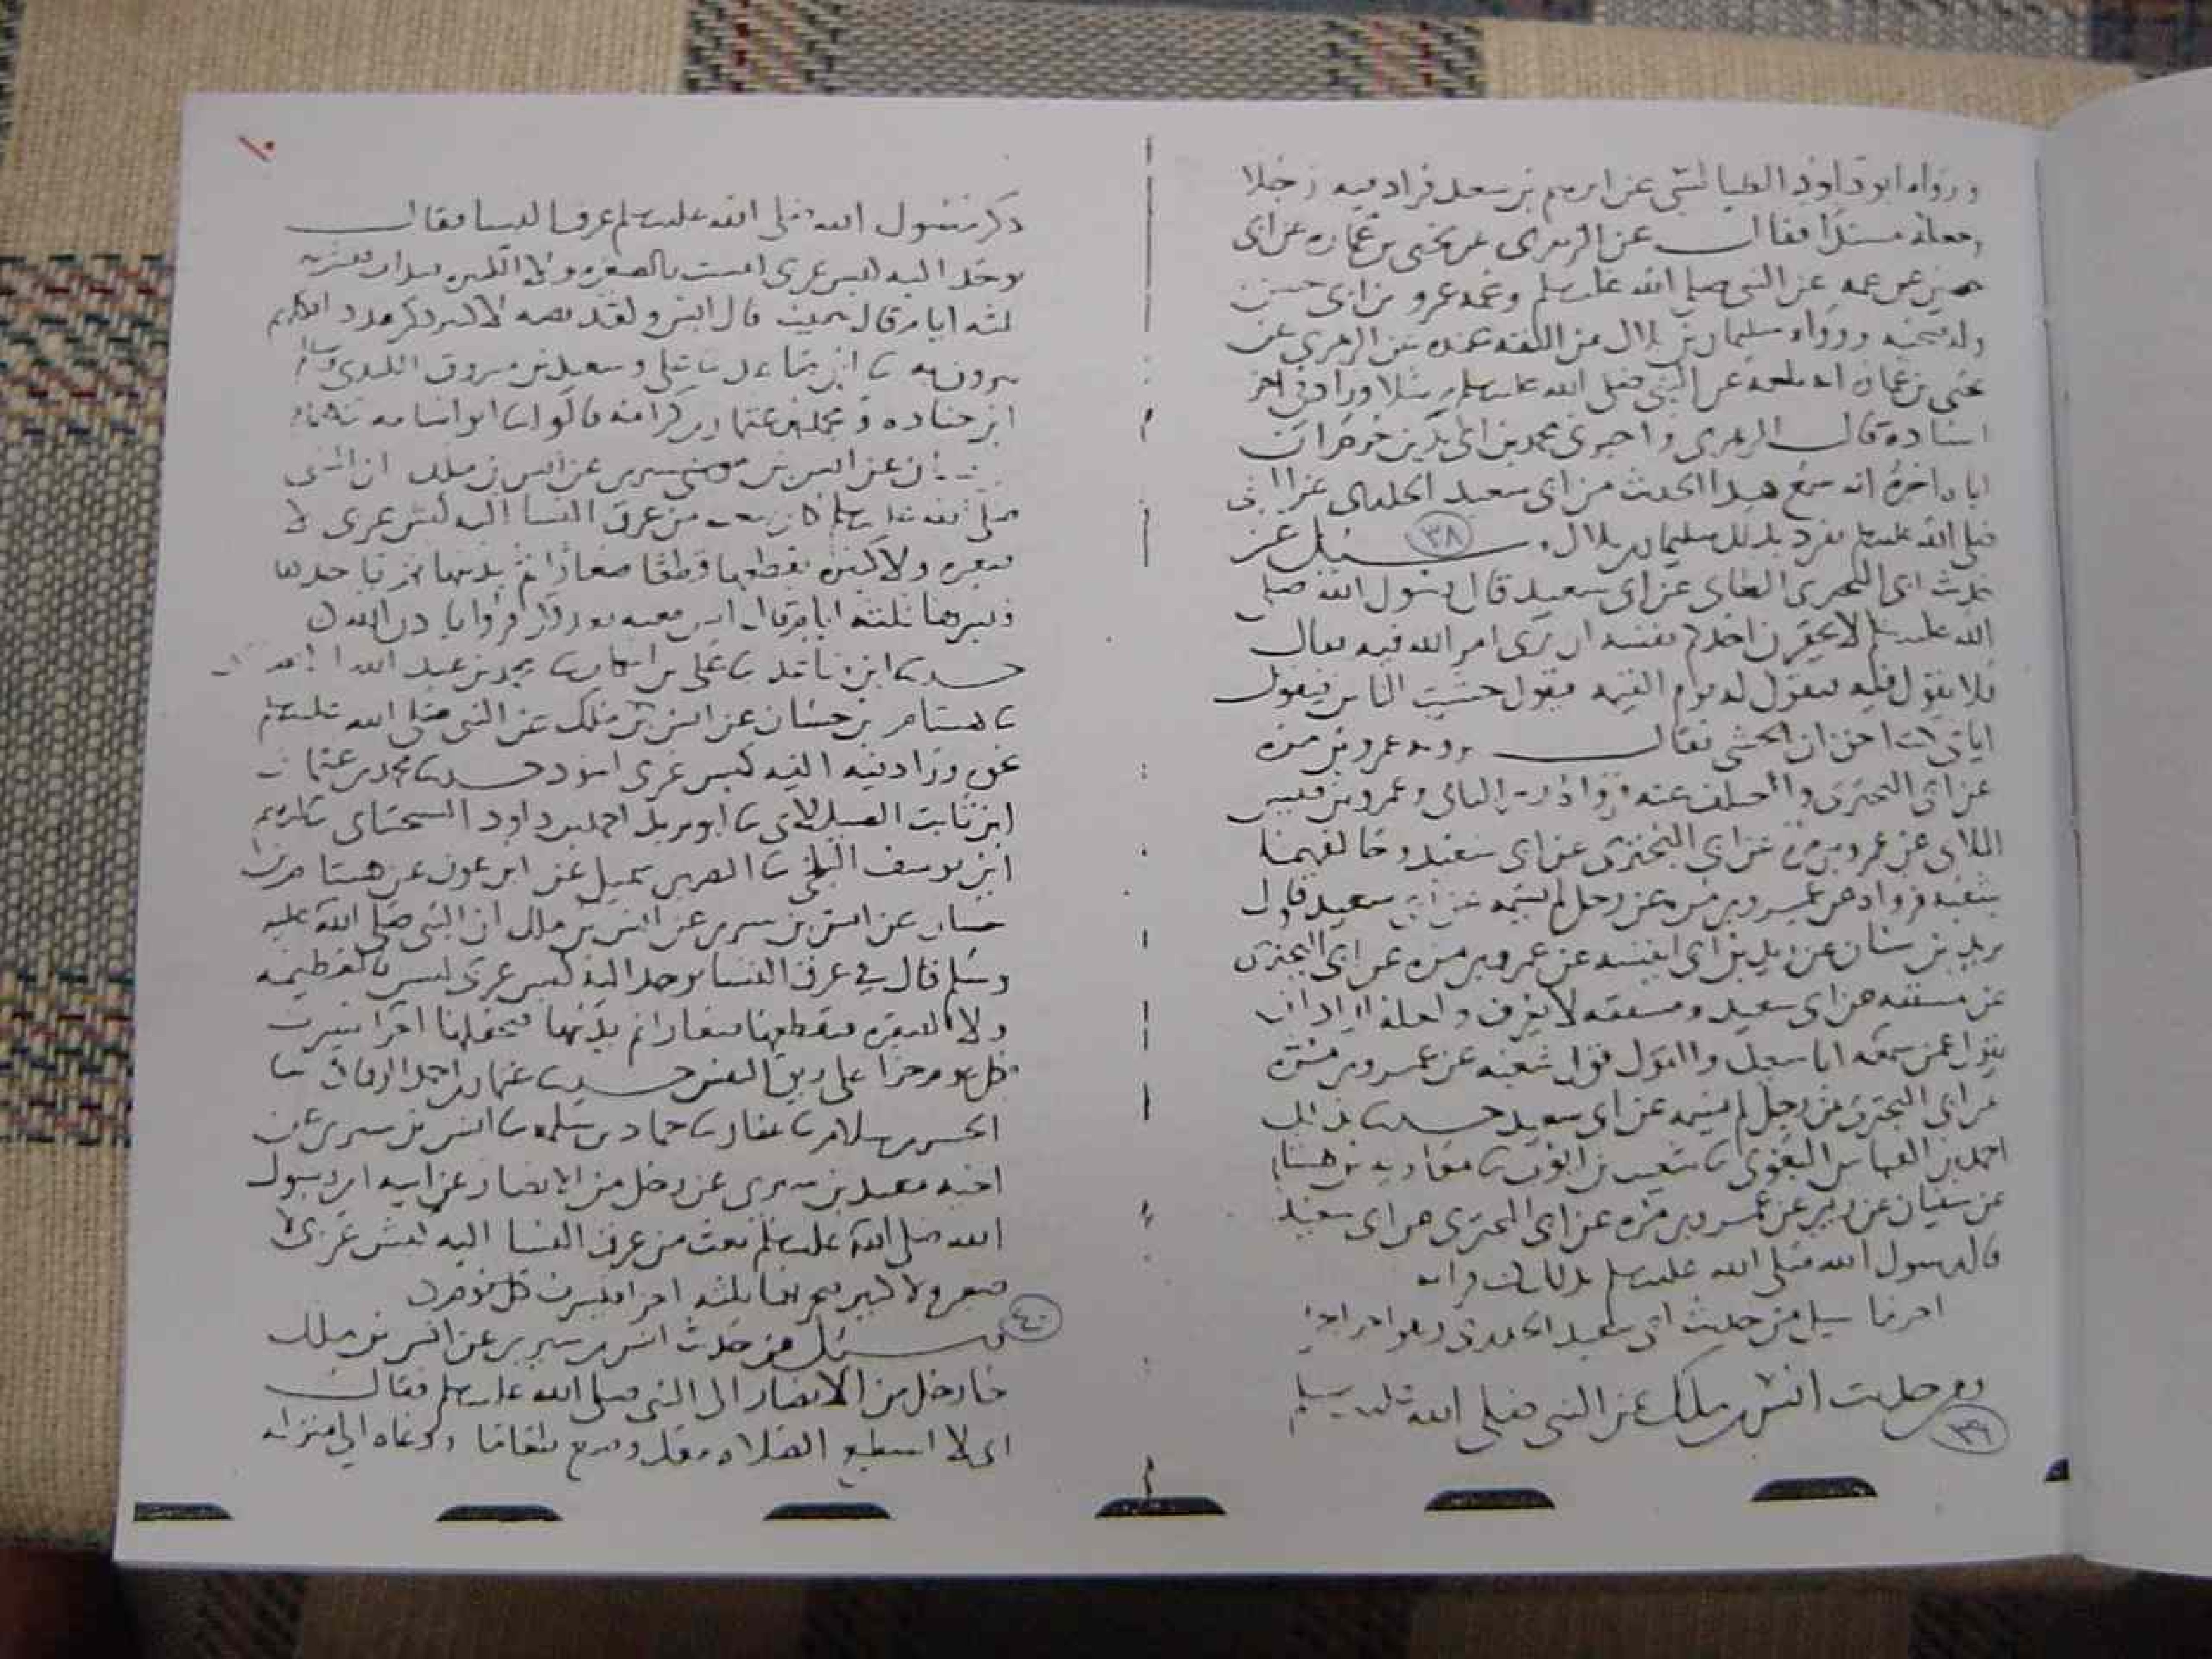 ورواه ابو داود الطيالسي عن ابرهيم بن سعد فزاد فيه رجلا
وجعله مسندا فقال عن الزهري عن يحيى بن عماره عن ابي
حسين عن عمه عن النبي صلى الله عليه وسلم وعمه عمرو بن ابي حسن
وله صحبه ورواه سليمان بن بلال عن الزهري عن
يحيى بن عماره انه بلغه عن النبي صلى الله عليه وسلم مرسلا وزاد في اخر
اسناده قال الزهري واخبرني محمد بن ابي بكر بن حزم ان
اباه اخبره انه سمع هذا الحديث من ابي سعيد الخدري عن النبي
صلى الله عليه وسلم تفرد بذلك سليمان بن بلال ٣٨ وسئل عن
حديث ابي البختري الطاي عن ابي سعيد قال رسول الله صلى
الله عليه وسلم لا يحقرن احدكم نفسه ان يرى امر الله فيه مقال
فلا يقول فيه فيقول له يوم القيمه فيقول خشيت الناس فيقول
اياي كنت احق ان تخشى فقال يرويه عمرو بن مره
عن ابي البختري واختلف عنه فرواه زبيد اليامي وعمرو بن قيس
الملاي عن عمرو بن مره عن ابي البختري عن ابي سعيد وخالفهما
شعبه فرواه عن عمرو بن مره عن رجل لم يسمه عن ابي سعيد وقال
يزيد بن سنان عن زيد بن ابي انيسه عن عمرو بن مره عن ابي البختري
عن مشفعه عن ابي سعيد ومشفعه لا يعرف ولعله اراد ان
يقول عمن سمعه ابا سعيد والقول قول شعبه عن عمرو بن مره
عن ابي البختري عن رجل لم يسمه عن ابي سعيد حدثنا بذلك
احمد بن العباس البغوي ثنا شعيب بن ايوب ثنا معاويه بن هشام
عن سفيان عن زبيد عن عمرو بن مره عن ابي البختري عن ابي سعيد
قال رسول الله صلى الله عليه وسلم
اخر ما سيل من حديث ابي سعيد الخدري
ومن حديث انس بن ملك عن النبي صلى الله عليه وسلم
٣٩
١٠
ذكر رسول الله صلى الله عليه وسلم عرق النسا فقال
يوخذ اليه كبش عربي ليست بالصغيره ولا الكبيره
ثلثه ايام قال انس ولقد نعته لاكثر
ثنا ابن صاعد ثنا علي وسعيد بن مسروق الكندي
ابن جناده ومحمد بن عثمان بن كرامه قالوا ثنا ابو اسامه ثنا هشام
عن انس بن سيرين عن انس بن ملك ان النبي
صلى الله عليه وسلم كان ينعت من عرق النسا اليه كبش عربي لا
صغيره ولا كبيره يقطعها قطعا صغارا ثم يذيبها
ويشربها ثلثه ايام قال انس
حدثنا ابن صاعد ثنا علي بن ثنا محمد بن عبد الله
ثنا هشام بن حسان عن انس بن ملك عن النبي صلى الله عليه وسلم
نحوه وزاد فيه اليه كبش عربي اسود حدثنا محمد بن عثمان
ابن ثابت الصيدلاني ثنا ابو يزيد احمد بن داود السختياني ثنا ابرهيم
ابن يوسف البلخي ثنا النضر بن شميل عن ابن عون عن هشام بن
حسان عن انس بن سيرين عن انس بن ملك ان النبي صلى الله عليه
وسلم قال في عرق النسا يوخذ اليه كبش عربي ليس بالعظيمه
ولا الصغيره فيقطعها صغارا ثم يذيبها فيجعلها اجزا فيشرب
كل يوم جزا على ريق النفس حدثنا عثمان بن احمد الدقاق ثنا
الحسن بن سلام ثنا عفان ثنا حماد بن سلمه ثنا انس بن سيرين عن
اخيه معبد بن سيرين عن رجل من الانصار عن ابيه ان رسول
الله صلى الله عليه وسلم نعت من عرق النسا اليه كبش عربي لا
صغير ولا كبير ثلثه اجزا فيشرب كل يوم
٤٠ وسئل عن حديث انس بن سيرين عن انس بن ملك
جا رجل من الانصار الى النبي صلى الله عليه وسلم فقال
اني لا استطيع الصلاه معك وصنع طعاما ودعاه الى منزله